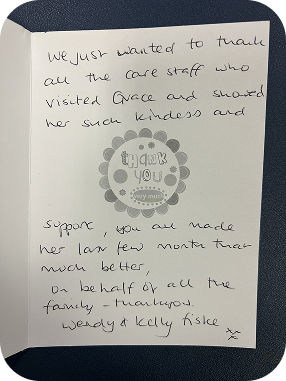 We just wanted to thank
all the care staff who
visited Grace and showed
her such kindess and
thank
you
very much
support, you all made
her last few month that
much better,
on behalf of all the
family - thankyou.
Wendy & Kelly Fiske xx